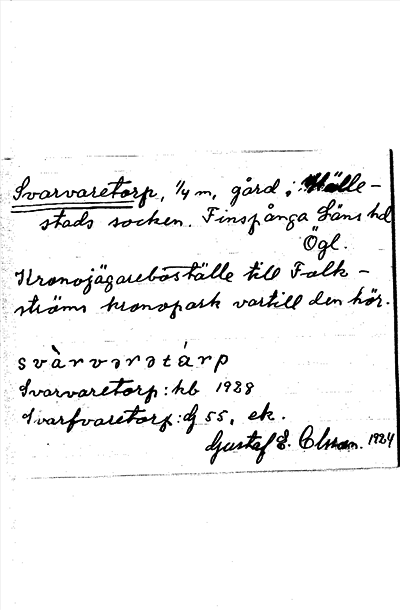 Svarvaretorp, 1/4 m, gård i Hälle-
stads socken. Finspånga Läns hd
Ögl.
Kronojägareboställe till Folk-
ströms kronopark vartill den hör.
svàrvərətárp
Svarvaretorp: kb 1928
Svarfvaretorp: dj 55, ek.
Gustaf E. Olsson. 1924